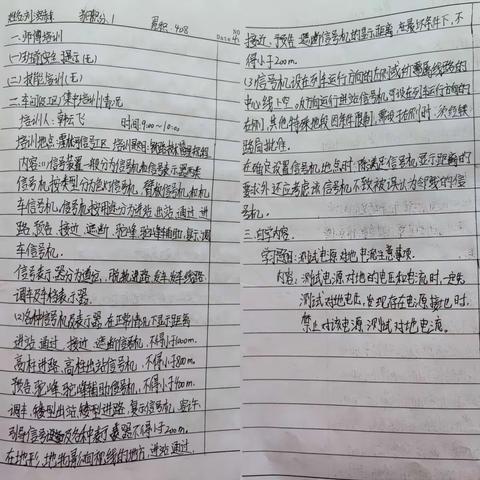 累积: 408
一.师傅培训
(一)劳动安全提示(无)
(二)技能培训(无)
二.车间(工区)集中培训情况
培训人: 韩云飞 时间9:00~10:00
内容:(1)信号装置一般分为信号机和信号表示器两类
信号机按类型分为色灯信号机、臂板信号机和机
车信号机。信号机按用途分为进站、出站、通过、进
路、预告、接近、遮断、驼峰、驼峰辅助、复示、调
车信号机。
信号表示器分为道岔、脱轨、进路、发车、发车线路、
调车及车挡表示器。
(2)各种信号机及表示器,在正常情况下显示距离
进站、通过、接近、遮断信号机,不得小于1000m.
高柱进路、高柱出站信号机,不得小于800m.
预告、驼峰、驼峰辅助信号机,不得小于400m.
调车、矮型出站、矮型进路、复示信号机,容许、
引导信号及各种表示器不得小于200m.
在地形、地物影响视线的地方,进站、通过、
接近、预告、遮断信号机的显示距离,在最坏条件下,不
得小于200m.
(3)信号机设在列车运行方向的左侧或所属线路的
中心线上空。反方向运行进站信号机可设在列车运行方向的
右侧,其他特殊地段因条件限制,需设于右侧时,须经铁
路局批准。
在确定设置信号机地点时,除满足信号机显示距离的
要求外,还应考虑该信号机不致被误认为邻线的信
号机。
三.自学内容
学习题目:测试电源对地电流注意事项.
内容:测试电源对地的电压和电流时,一定先
测试对地电压,发现存在电源接地时,
禁止对该电源测试对地电流。